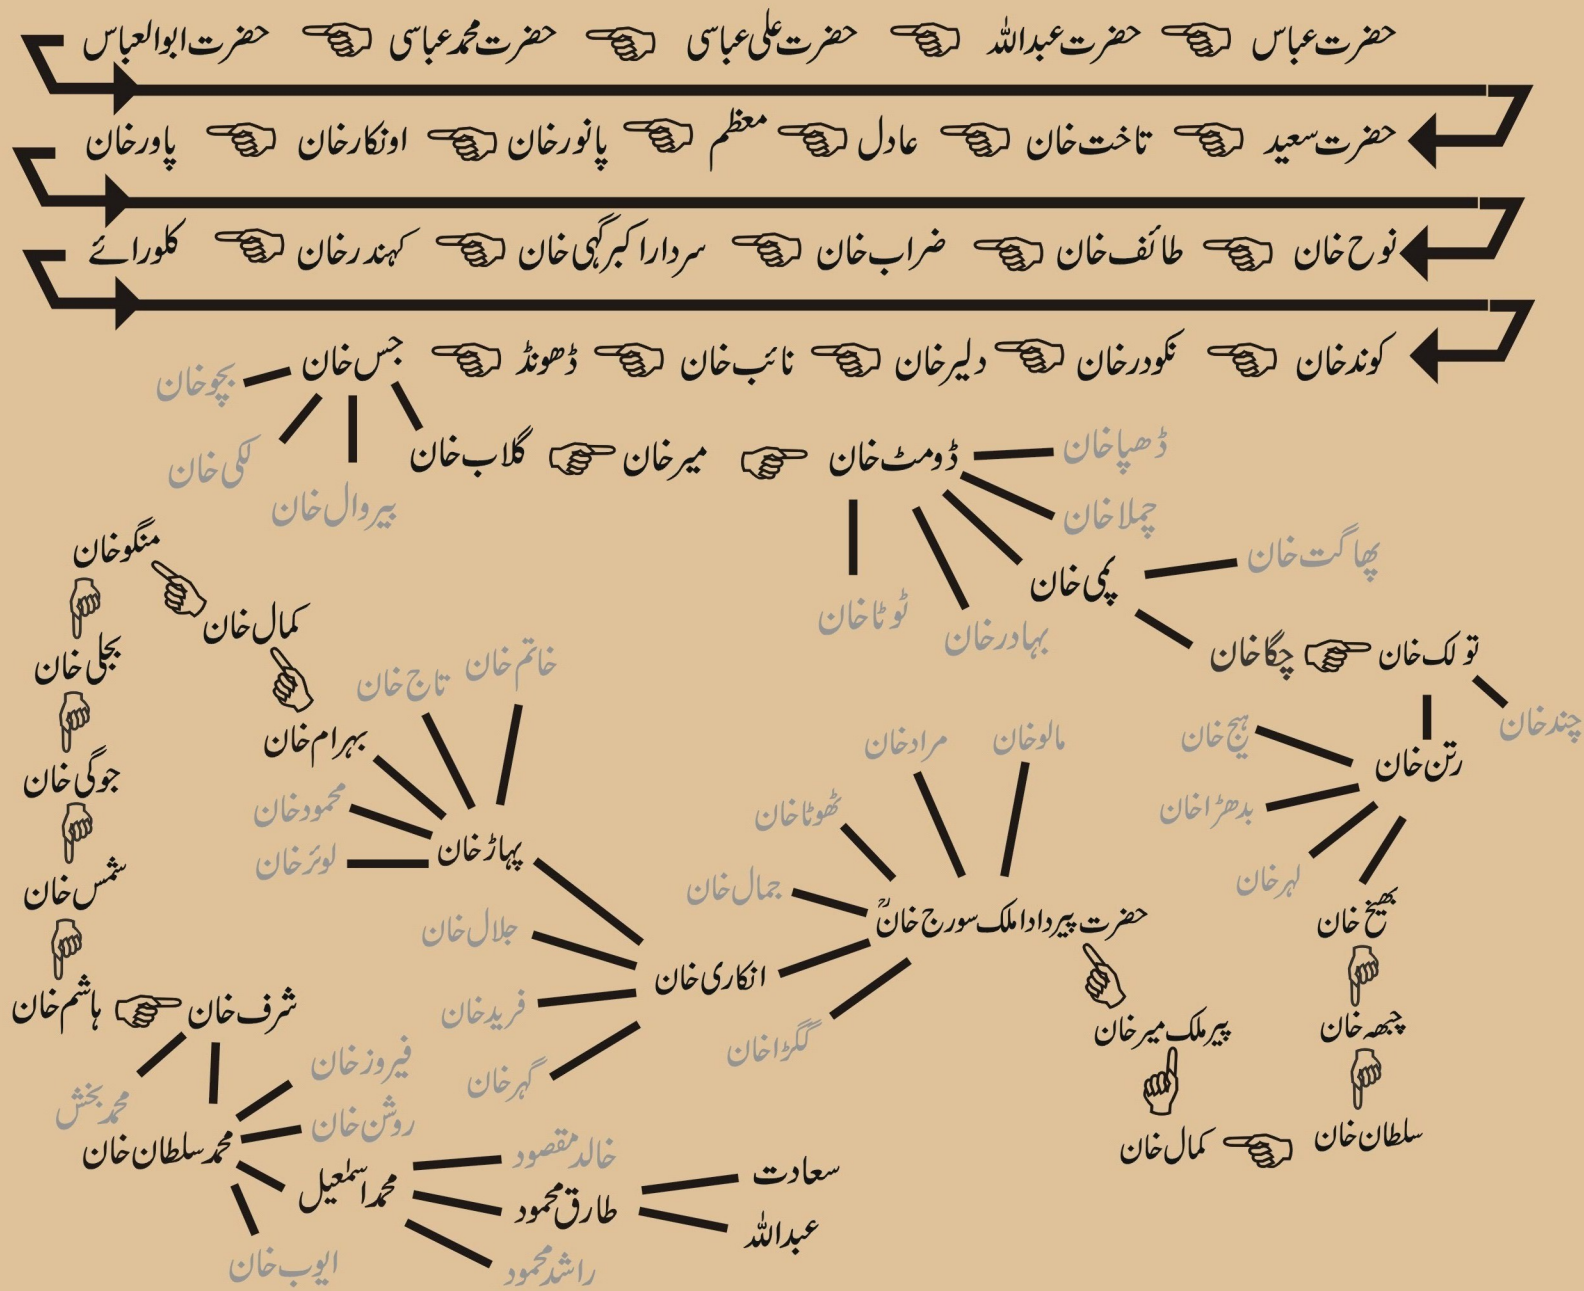 حضرت عباس حضرت عبداللہ حضرت علی عباسی حضرت محمد عباسی حضرت ابوالعباس
حضرت سعید تاخت خان عادل معظم پانور خان اونکار خان پاور خان
نوح خان طائف خان ضراب خان سردار اکبر گہی خان کہندر خان کلورائے
کوند خان نکودر خان دلیر خان نائب خان ڈھونڈ جس خان
بجو خان
لکی خان
بیروال خان
گلاب خان میر خان ڈومٹ خان
ڈھپا خان
چملا خان
پمی خان
بہادر خان
ٹوٹا خان
پھاگت خان
چگا خان تولک خان
چند خان
رتن خان
ہیچ خان
بدھڑا خان
لہر خان
بھیخ خان
چبھہ خان
سلطان خان کمال خان
پیر ملک میر خان
حضرت پیر دادا ملک سورج خانؒ
مالو خان
مراد خان
ٹھوٹا خان
جمال خان
گگڑا خان
انکاری خان
جلال خان
فرید خان
گہر خان
پہاڑ خان
خاتم خان
تاج خان
محمود خان
لوئر خان
بہرام خان
کمال خان
منگو خان
بجلی خان
جوگی خان
شمس خان
ہاشم خان شرف خان
محمد بخش
محمد سلطان خان
فیروز خان
روشن خان
ایوب خان
محمد اسمٰعیل
خالد مقصود
طارق محمود
راشد محمود
سعادت
عبداللہ